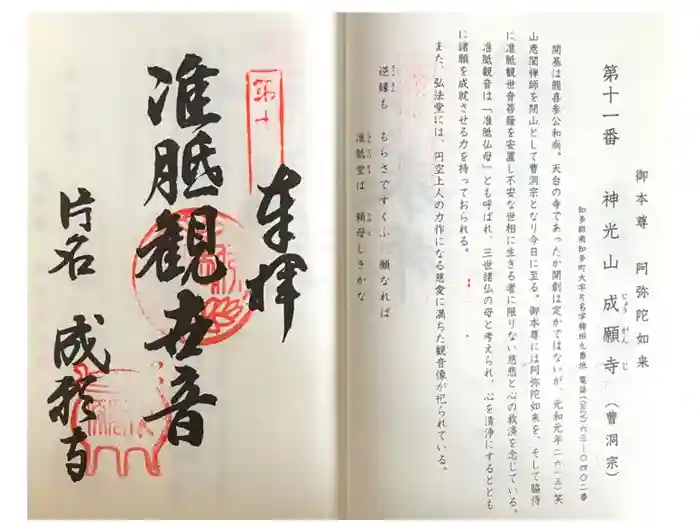 御本尊　阿弥陀如来
第十一番　神光山　成願寺（曹洞宗）
じょう がん じ
知多郡南知多町大字片名字稗田九番地
開基は龍喜参公和尚。天台の寺であったか開創は定かではないが、元和元年（一六一五）笑
山恵誾禅師を開山として曹洞宗となり今日に至る。御本尊には阿弥陀如来を、そして脇侍
に准胝観世音菩薩を安置し不安な世相に生きる者に限りない慈悲と心の救済を念じている。
准胝観音は「准胝仏母」とも呼ばれ、三世諸仏の母と考えられ、心を清浄にするととも
に諸願を成就させる力を持っておられる。
また、弘法堂には、円空上人の力作になる慈愛に満ちた観音像が祀られている。
逆縁も　もらさですくふ　願なれば
准胝堂は　頼母しきかな
奉拝
第十
准胝観世音
片名　成願寺